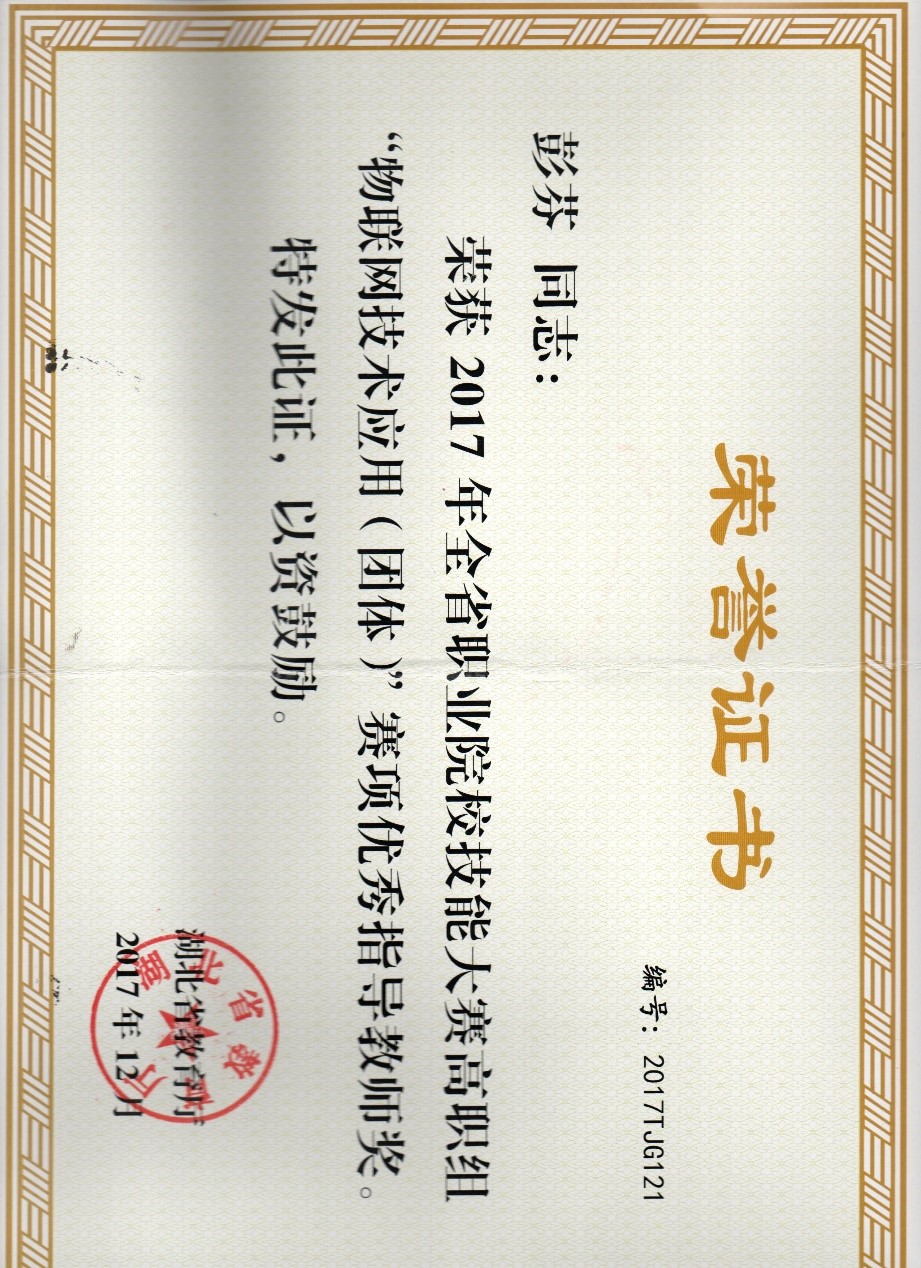 荣誉证书
编号：2017TJG121
彭芬 同志：
荣获 2017 年全省职业院校技能大赛高职组
“物联网技术应用（团体）”赛项优秀指导教师奖。
特发此证，以资鼓励。
湖北省教育厅
2017 年 12 月
湖北省教育厅